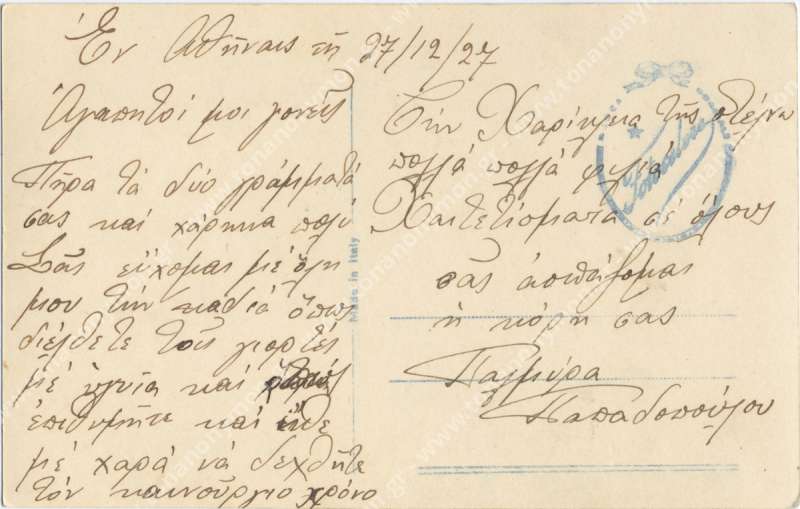 Ἐν Ἀθήναις τῇ 27/12/27
Ἀγαπητοί μοι γονεῖς
Πῆρα τά δύο γράμματά
σας καί χάρηκα πολύ
Σᾶς εὔχομαι μέ ὅλη
μου τήν καδιά ὅπως
διέλθετε τάς γιορτές
μέ ὑγεία καί
ἐπιθυμῆτε καί εἴθε
μέ χαρά νά δεχθῆτε
τόν καινούργιο χρόνο
Made in Italy
Τήν Χαρίκλεια τῆς στέλνω
πολλά πολλά φιλιά
Χαιρετίσματα σέ ὅλους
σᾶς ἀσπάζομαι
ἡ κόρη σας
Παλμύρα
Παπαδοπούλου